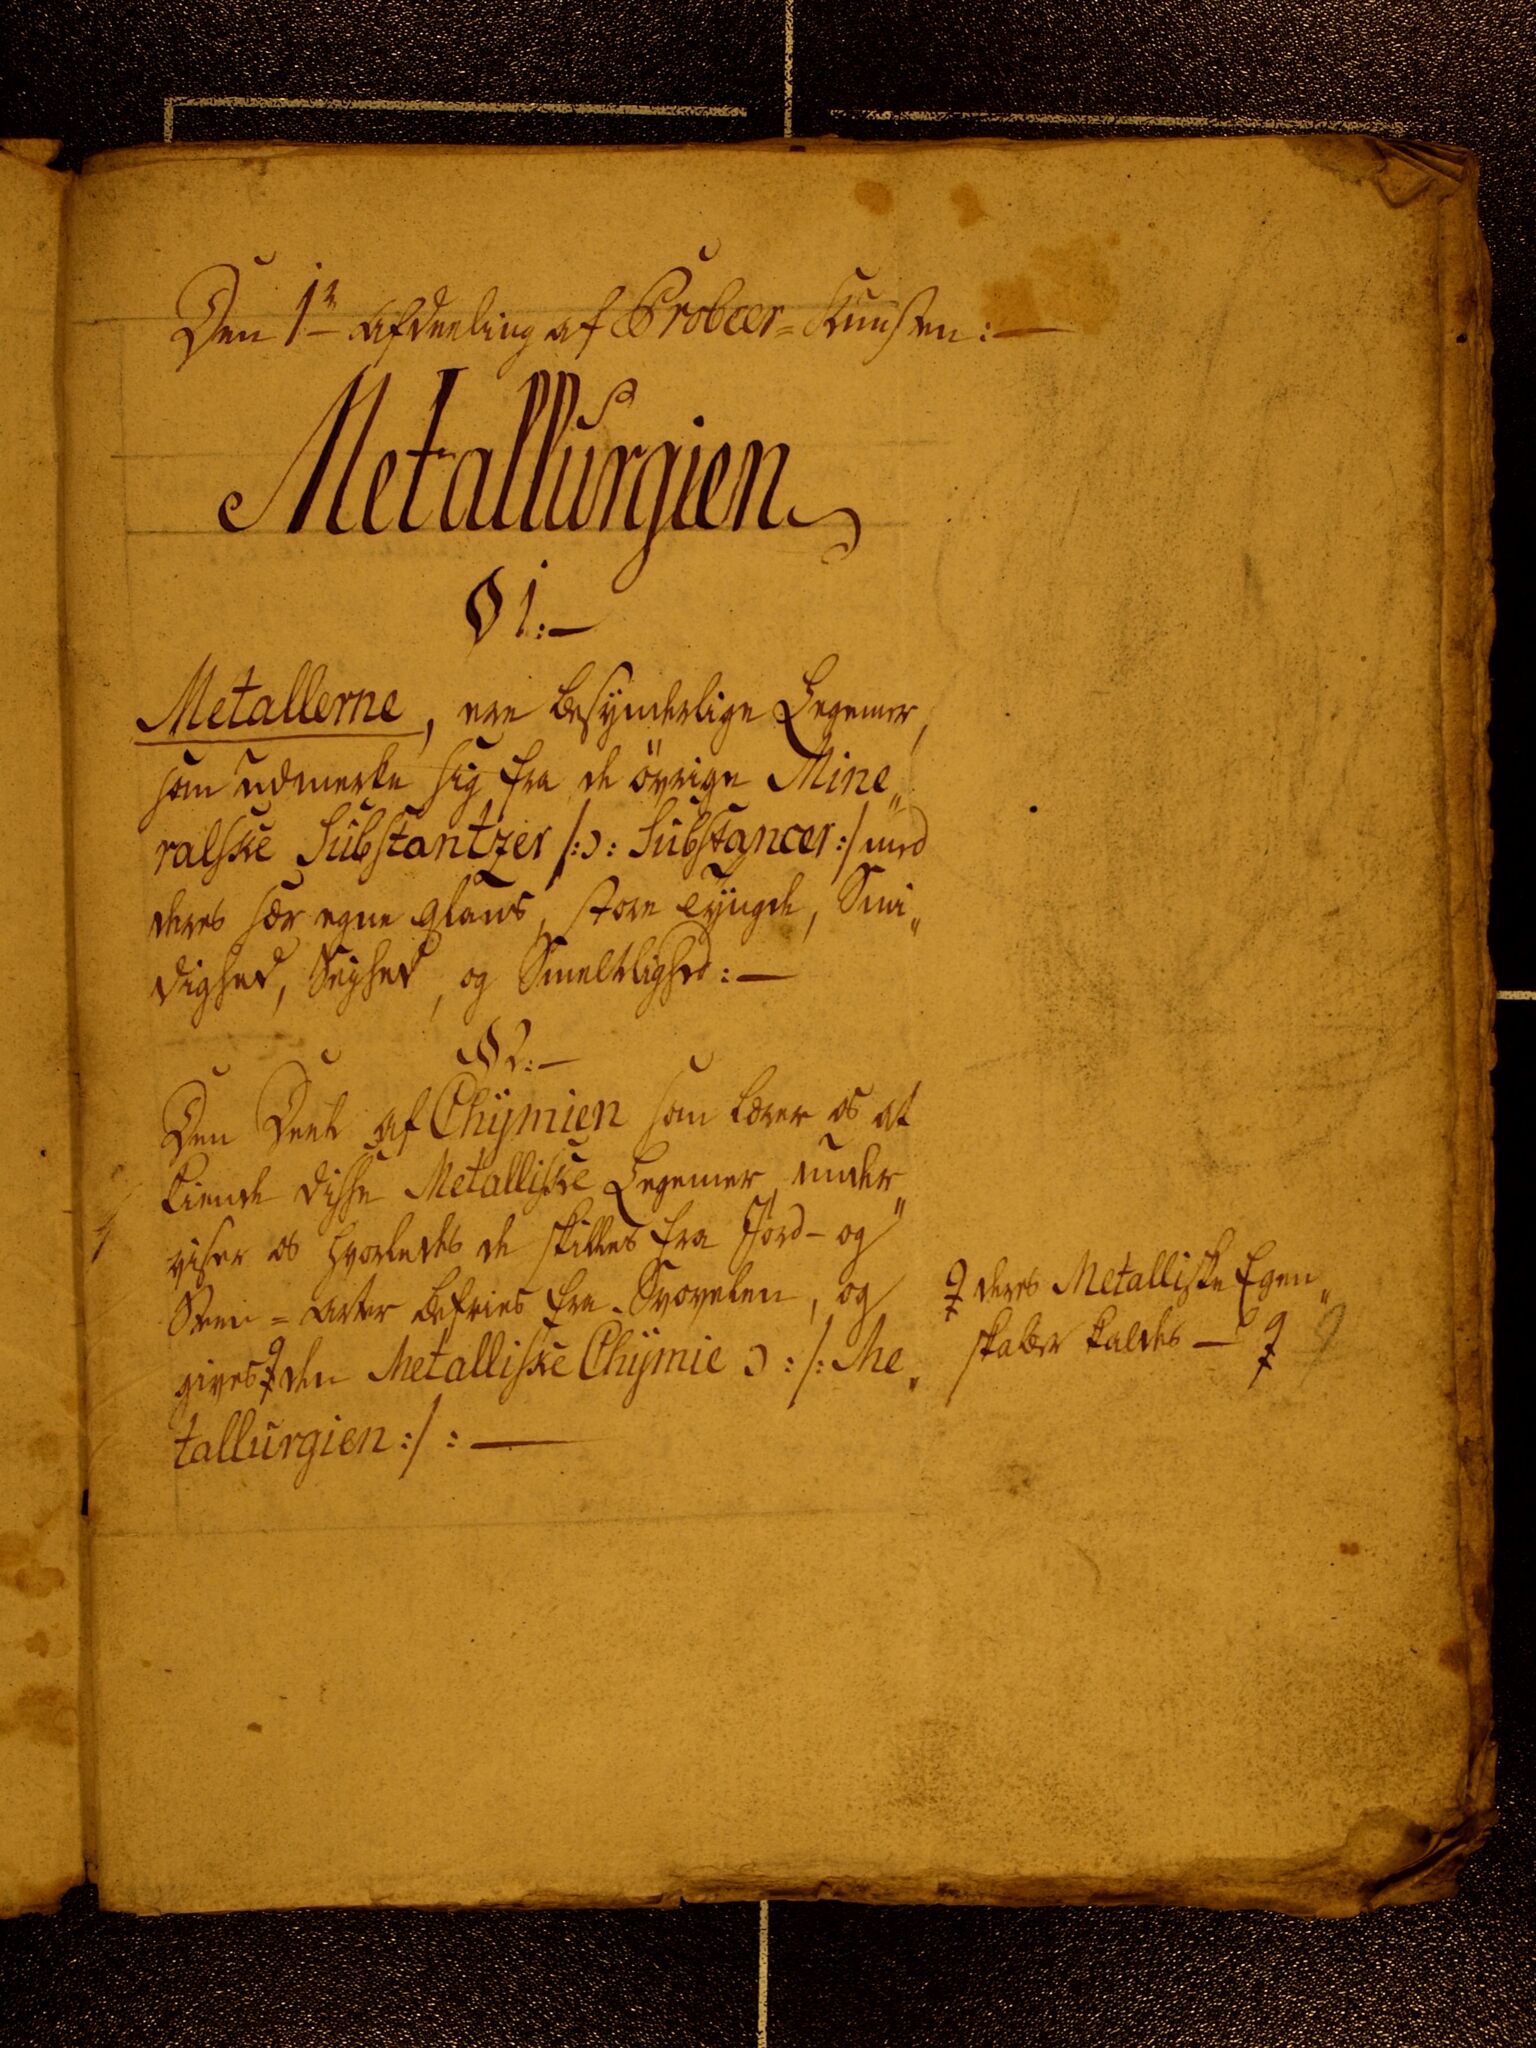 Den 1ᵗᵉ Afdeeling af Probeer=Kunsten:—
Metallurgien
§ 1:—
Metallerne, ere besÿnderlige Legemer,
som udmerke sig fra de öfrige Mine„
ralske Substantzer /:ɔ: Substancer:/ med
deres sær egne glans, store tÿngde, Smi„
dighed, Seÿhed, og Smeltlighed:—
§ 2:—
Den Deel af Chÿmien som lærer os at
kiende disse Metalliske Legemer under„
viser os hvorledes de skilles fra Jord- og
Steen=Arter befries fra Svovelen, og
gives ♀ den Metalliske Chÿmie ɔ:/: Me„
tallurgien:/:—
♀ deres Metalliske Egen„
skaber kaldes — ♀